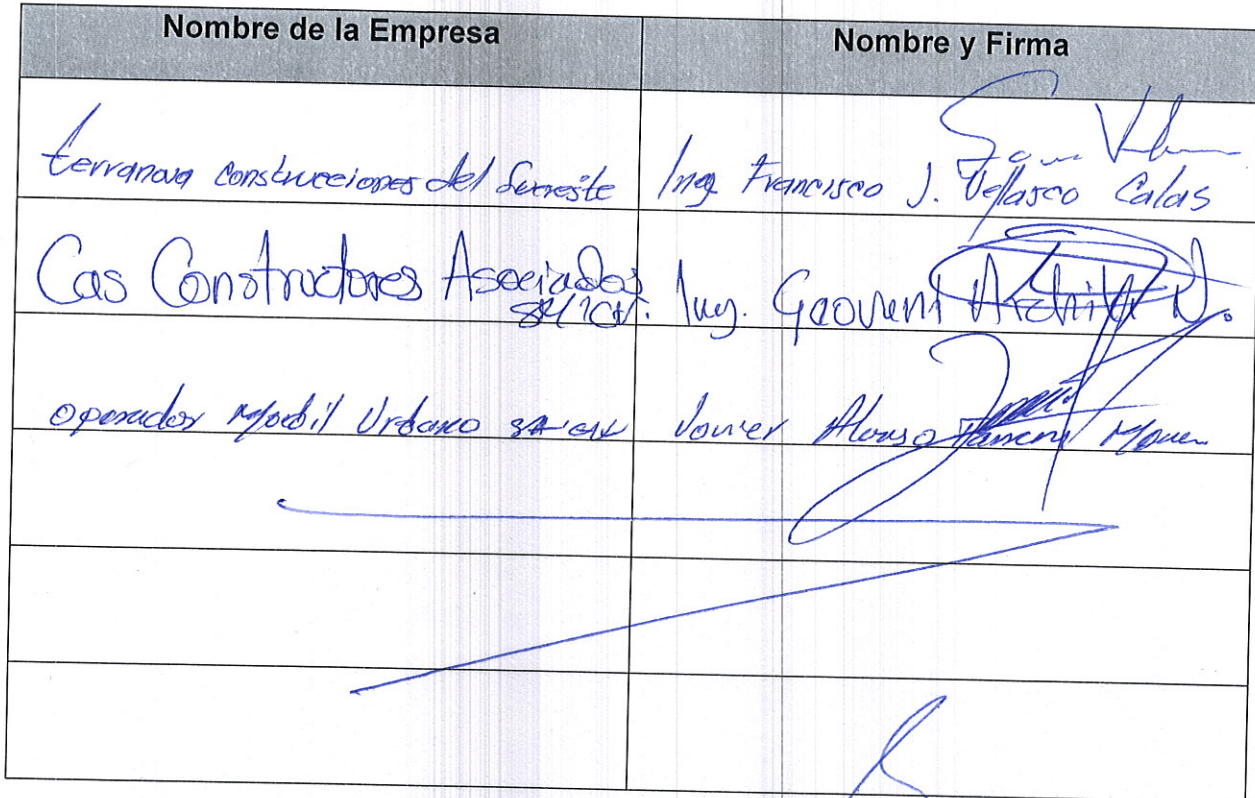 Nombre de la Empresa
Nombre y Firma
terranova construcciones del Sureste
Ing Francisco J. Velasco Calas
Cas Constructores Asociados
SA/CV.
Ing. Geovani Archila N.
operador Mobil Urbano SA CV
Javier Alonso